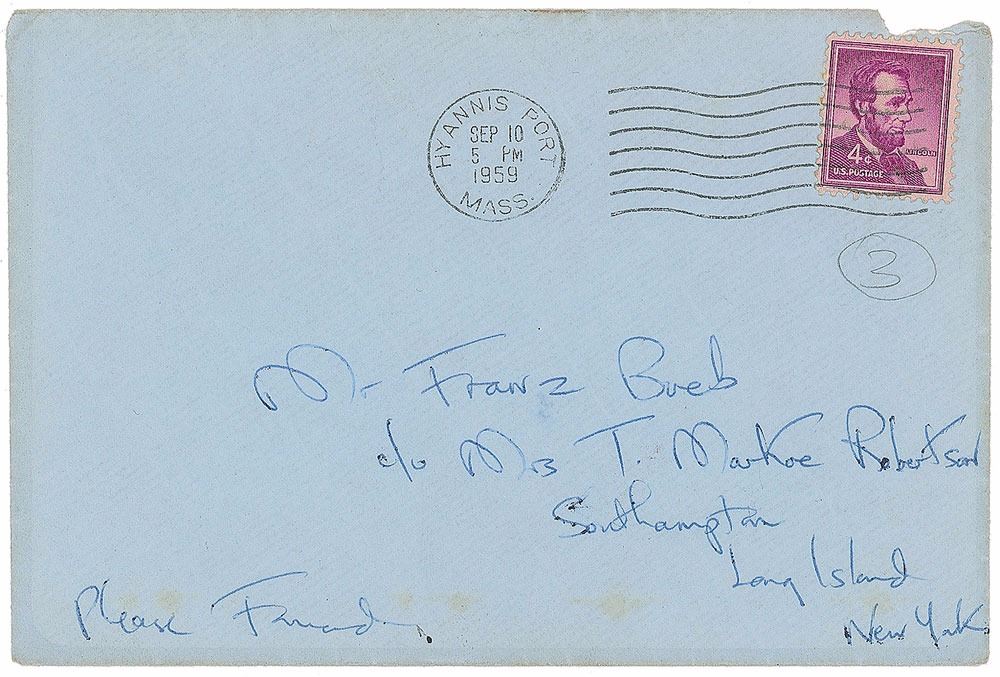 HYANNIS PORT
SEP 10
5 PM
1959
MASS.
LINCOLN
4¢
U.S. POSTAGE
3
Mr Franz Bueb
c/o Mrs T. Markoe Robertson
Southampton
Long Island
New York
Please Forward